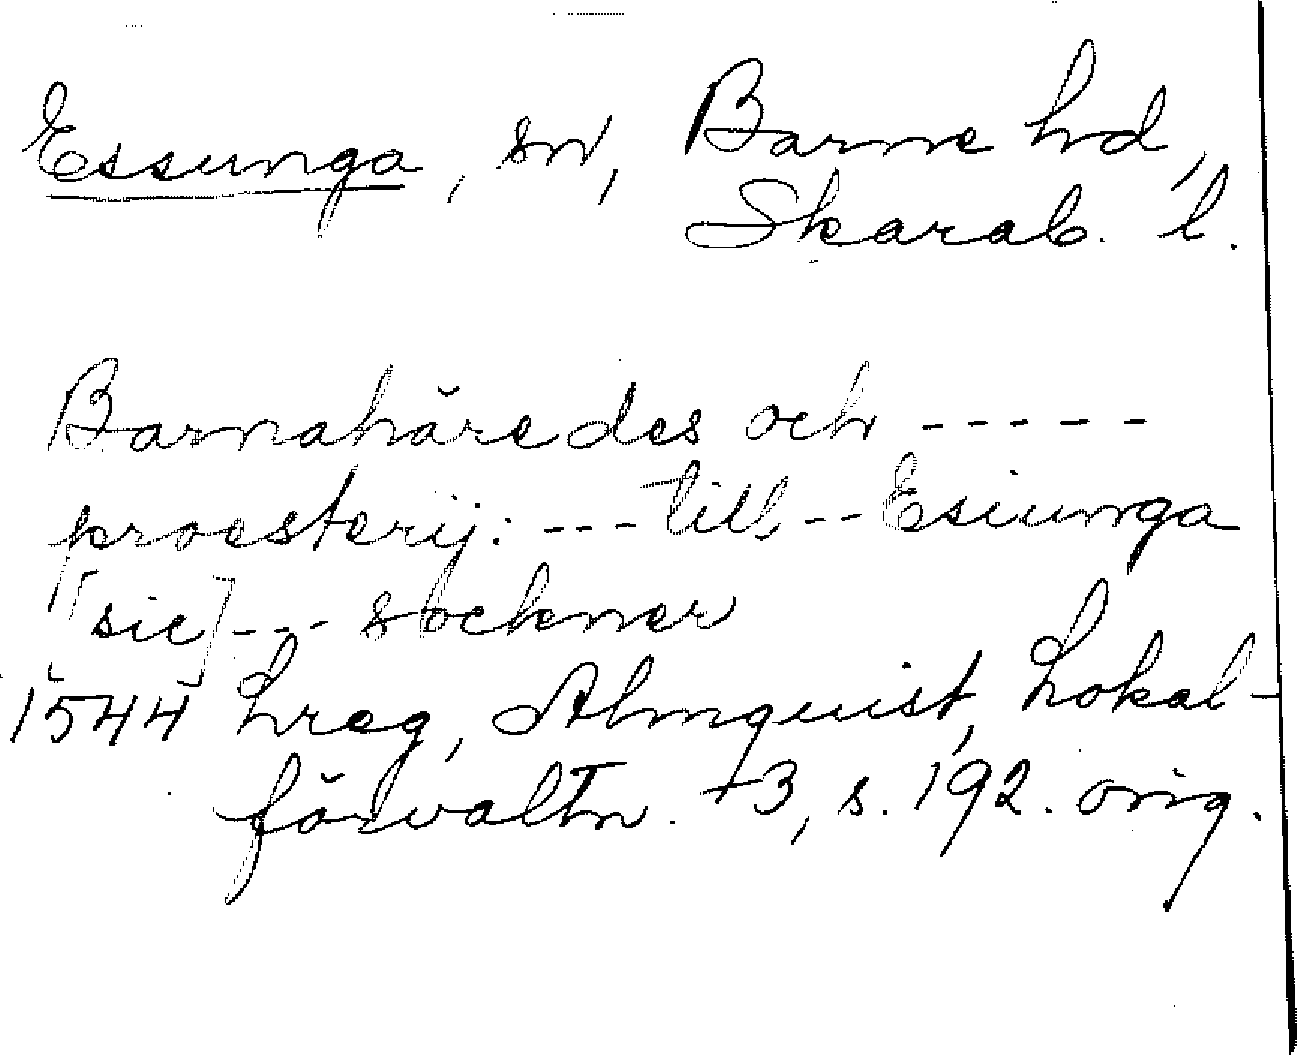 Essunga, sn, Barne hd,
Skarab. l.
Barnahäredes och -----
proesterij: --- till -- Esiunga
[sic] --- sockner
1544 hreg, Almquist, Lokal-
förvaltn. +3, s. 192. orig.